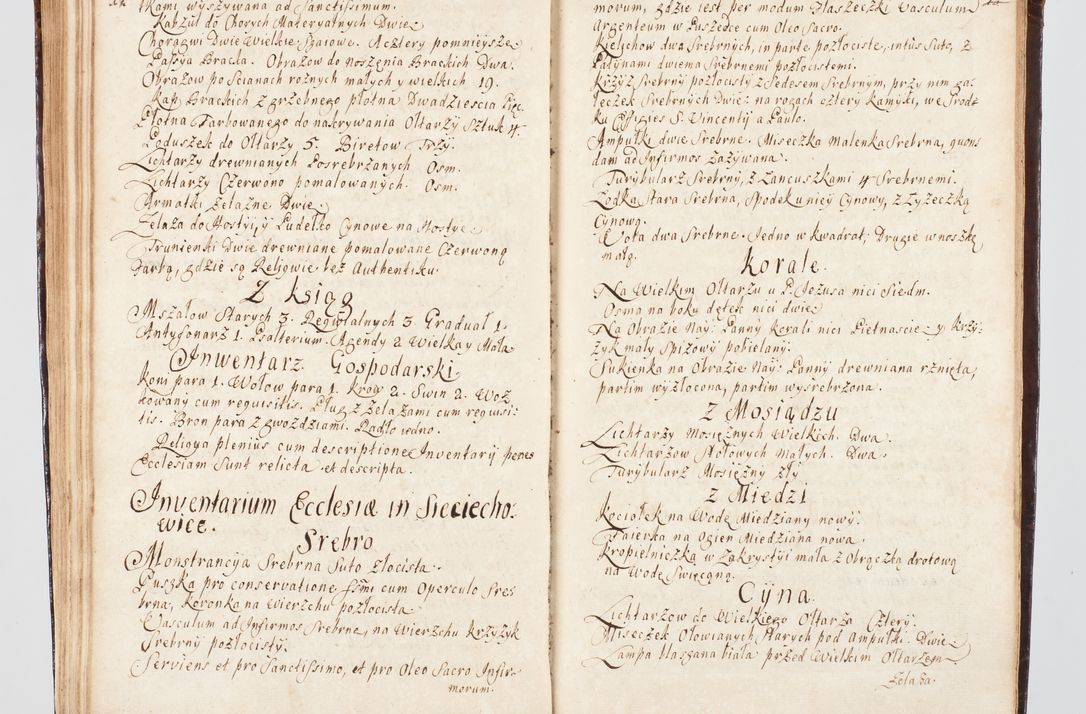 tkami wyszywana ad Sanctissimum.
Kapzul do Chorych Materyalnych Dwie.
Chorągwi Dwie Wielkie Staiowe. A cztery pomnieysze
Passya Bracka. Obrazow do noszenia Brackich Dwa.
Obrazow po Scianach rożnych małych y wielkich 19.
Kap Brackich z zgrzebnego płotna Dwadziescia Pięć.
Płotna Farbowanego do nakrywania Ołtarzy Sztuk 4.
Poduszek do Ołtarzy 5. Biretow Trzy.
Lichtarzy drewnianych Posrebrzanych Osm.
Lichtarzy Czerwono pomalowanych. Osm.
Armatki Zelazne Dwie.
Zelaza do Hostyi, y Pudełko Cynowe na Hostye.
Trunienki Dwie drewniane pomalowane Czerwoną
Farbą, gdzie są Religwie bez Authentiku.
Z Ksiąg
Mszałow Starych 3. Regwialnych 3 Graduał 1.
Antyfonarz 1. Psalterium. Agendy 2 Wielka y Mała
Inwentarz Gospodarski.
Koni para 1. Wołow para 1. Krow 2. Swin 2. Woz
kowany cum requisitis. Pług z Zelazami cum requisi-
tis. Bron para z gwozdziami. Radło jedno.
Religva plenius cum descriptione Inventarij penes
Ecclesiam Sunt relicta et descripta.
Inventarium Ecclesiæ in Sieciecho-
wice.
Srebro
Monstrancya Srebrna Suto złocista.
Puszka pro conservatione Ssmi cum Operculo Sre-
brna, Koronka na Wierzchu pozłocista.
Vasculum ad Infirmos Srebrne, na Wierzchu Krzyżyk
Srebrny pozłocisty.
Serviens et pro Sanctissimo, et pro Oleo Sacro Infir-
morum.
morum, gdzie iest per modum Flaszeczki Vasculum
Argenteum w Puszedce cum Oleo Sacro.
Kielichow dwa Srebrnych, in parte pozłociste, intus Suto, z
Patynami dwiema Srebrnemi pozłocistemi.
Krzyż Srebrny pozłocisty z Pedesem Srebrnym, przy nim ga-
łeczek Srebrnych Dwie: na rogach cztery Kamyki, we Srod-
ku Effigies S. Vincentij a Paulo.
Ampułki dwie Srebrne. Miseczka Malenka Srebrna, quon-
dam ad Infirmos zażywana.
Turybularz Srebrny, z Lancuszkami 4 Srebrnemi.
Łodka Stara Srebrna, Spodek u niey Cynowy, z Łyżeczką
Cynową.
Wota dwa Srebrne. Jedno w kwadrat, Drugie w noszkę
małą.
Korale.
Na Wielkim Ołtarzu u P. Jezusa nici Siedm.
Osma na boku dętek nici dwie.
Na Obrazie Nay: Panny Korali nici Pietnascie y krzy-
żyk mały Spiżowy pobielany.
Sukienka na Obrazie Nay: Panny drewniana rznięta,
partim wyzłocona, partim wysrebrzona.
Z Mosiądzu
Lichtarzy Mosiężnych Wielkich. Dwa.
Lichtarzow Stołowych małych. Dwa.
Turybularz Mosiężny zły
Z Miedzi
Kociołek na Wodę Miedziany nowy.
Faierka na Ogien Miedziana nowa.
Kropielniczka w Zakrystyi mała z Obręczą drotową
na Wodę Swięconą.
Cyna.
Lichtarzow do Wielkiego Ołtarza Cztery.
Miseczek Ołowianych Starych pod ampułki. Dwie.
Lampa blaszana biała przed Wielkim Ołtarzem
Zelaza.